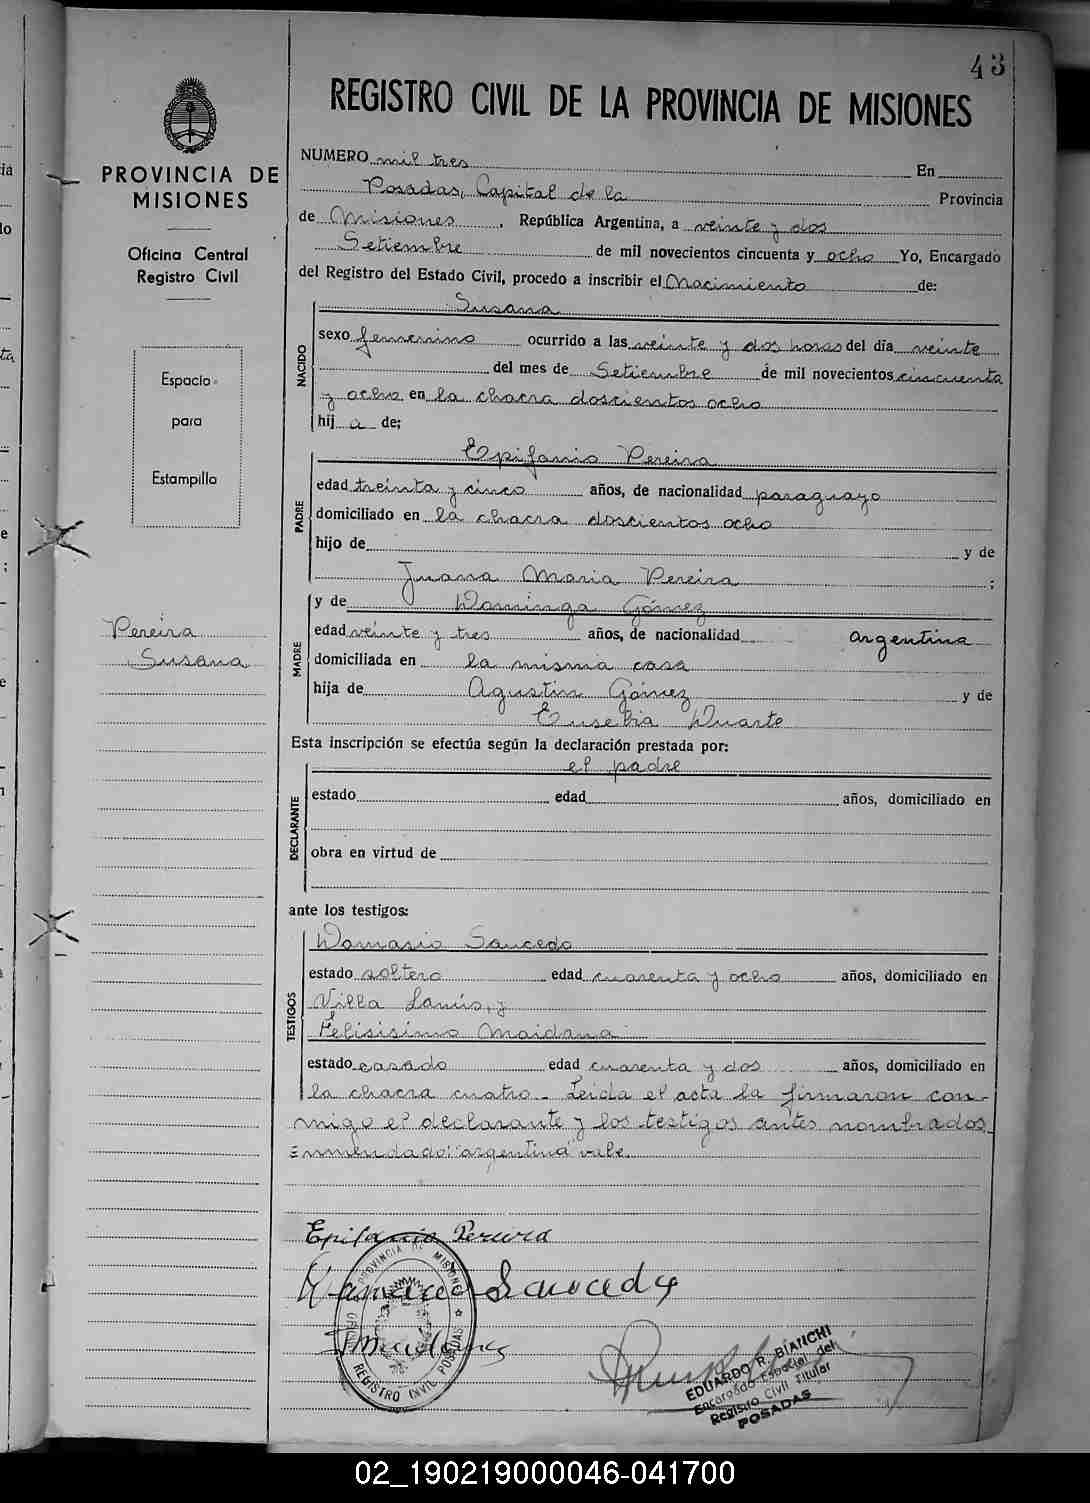 43
REGISTRO CIVIL DE LA PROVINCIA DE MISIONES
PROVINCIA DE
MISIONES
Oficina Central
Registro Civil
Espacio
para
Estampilla
Pereira
Susana
NUMERO mil tres En
Posadas, Capital de la Provincia
de Misiones, República Argentina, a veinte y dos
Setiembre de mil novecientos cincuenta y ocho Yo, Encargado
del Registro del Estado Civil, procedo a inscribir el Nacimiento de:
NACIDO
Susana
sexo femenino ocurrido a las veinte y dos horas del día veinte
del mes de Setiembre de mil novecientos cincuenta
y ocho en la chacra doscientos ocho
hij a de;
PADRE
Epifanio Pereira
edad treinta y cinco años, de nacionalidad paraguayo
domiciliado en la chacra doscientos ocho
hijo de y de
Juana Maria Pereira ;
MADRE
y de Dominga Gómez
edad veinte y tres años, de nacionalidad argentina
domiciliada en la misma casa
hija de Agustin Gómez y de
Eusebia Duarte
Esta inscripción se efectúa según la declaración prestada por:
DECLARANTE
el padre
estado edad años, domiciliado en
obra en virtud de
ante los testigos:
TESTIGOS
Damasio Saucedo
estado soltero edad cuarenta y ocho años, domiciliado en
Villa Lanús, y
Felisisimo Maidana
estado casado edad cuarenta y dos años, domiciliado en
la chacra cuatro - Leida el acta la firmaron con-
migo el declarante y los testigos antes nombrados
Enmendado: "argentina" vale.
Epifanio Pereira
Saucedo
PROVINCIA DE MISIONES
REGISTRO CIVIL POSADAS
EDUARDO R. BIANCHI
Encargado Especial del
Registro Civil Titular
POSADAS
02_190219000046-041700